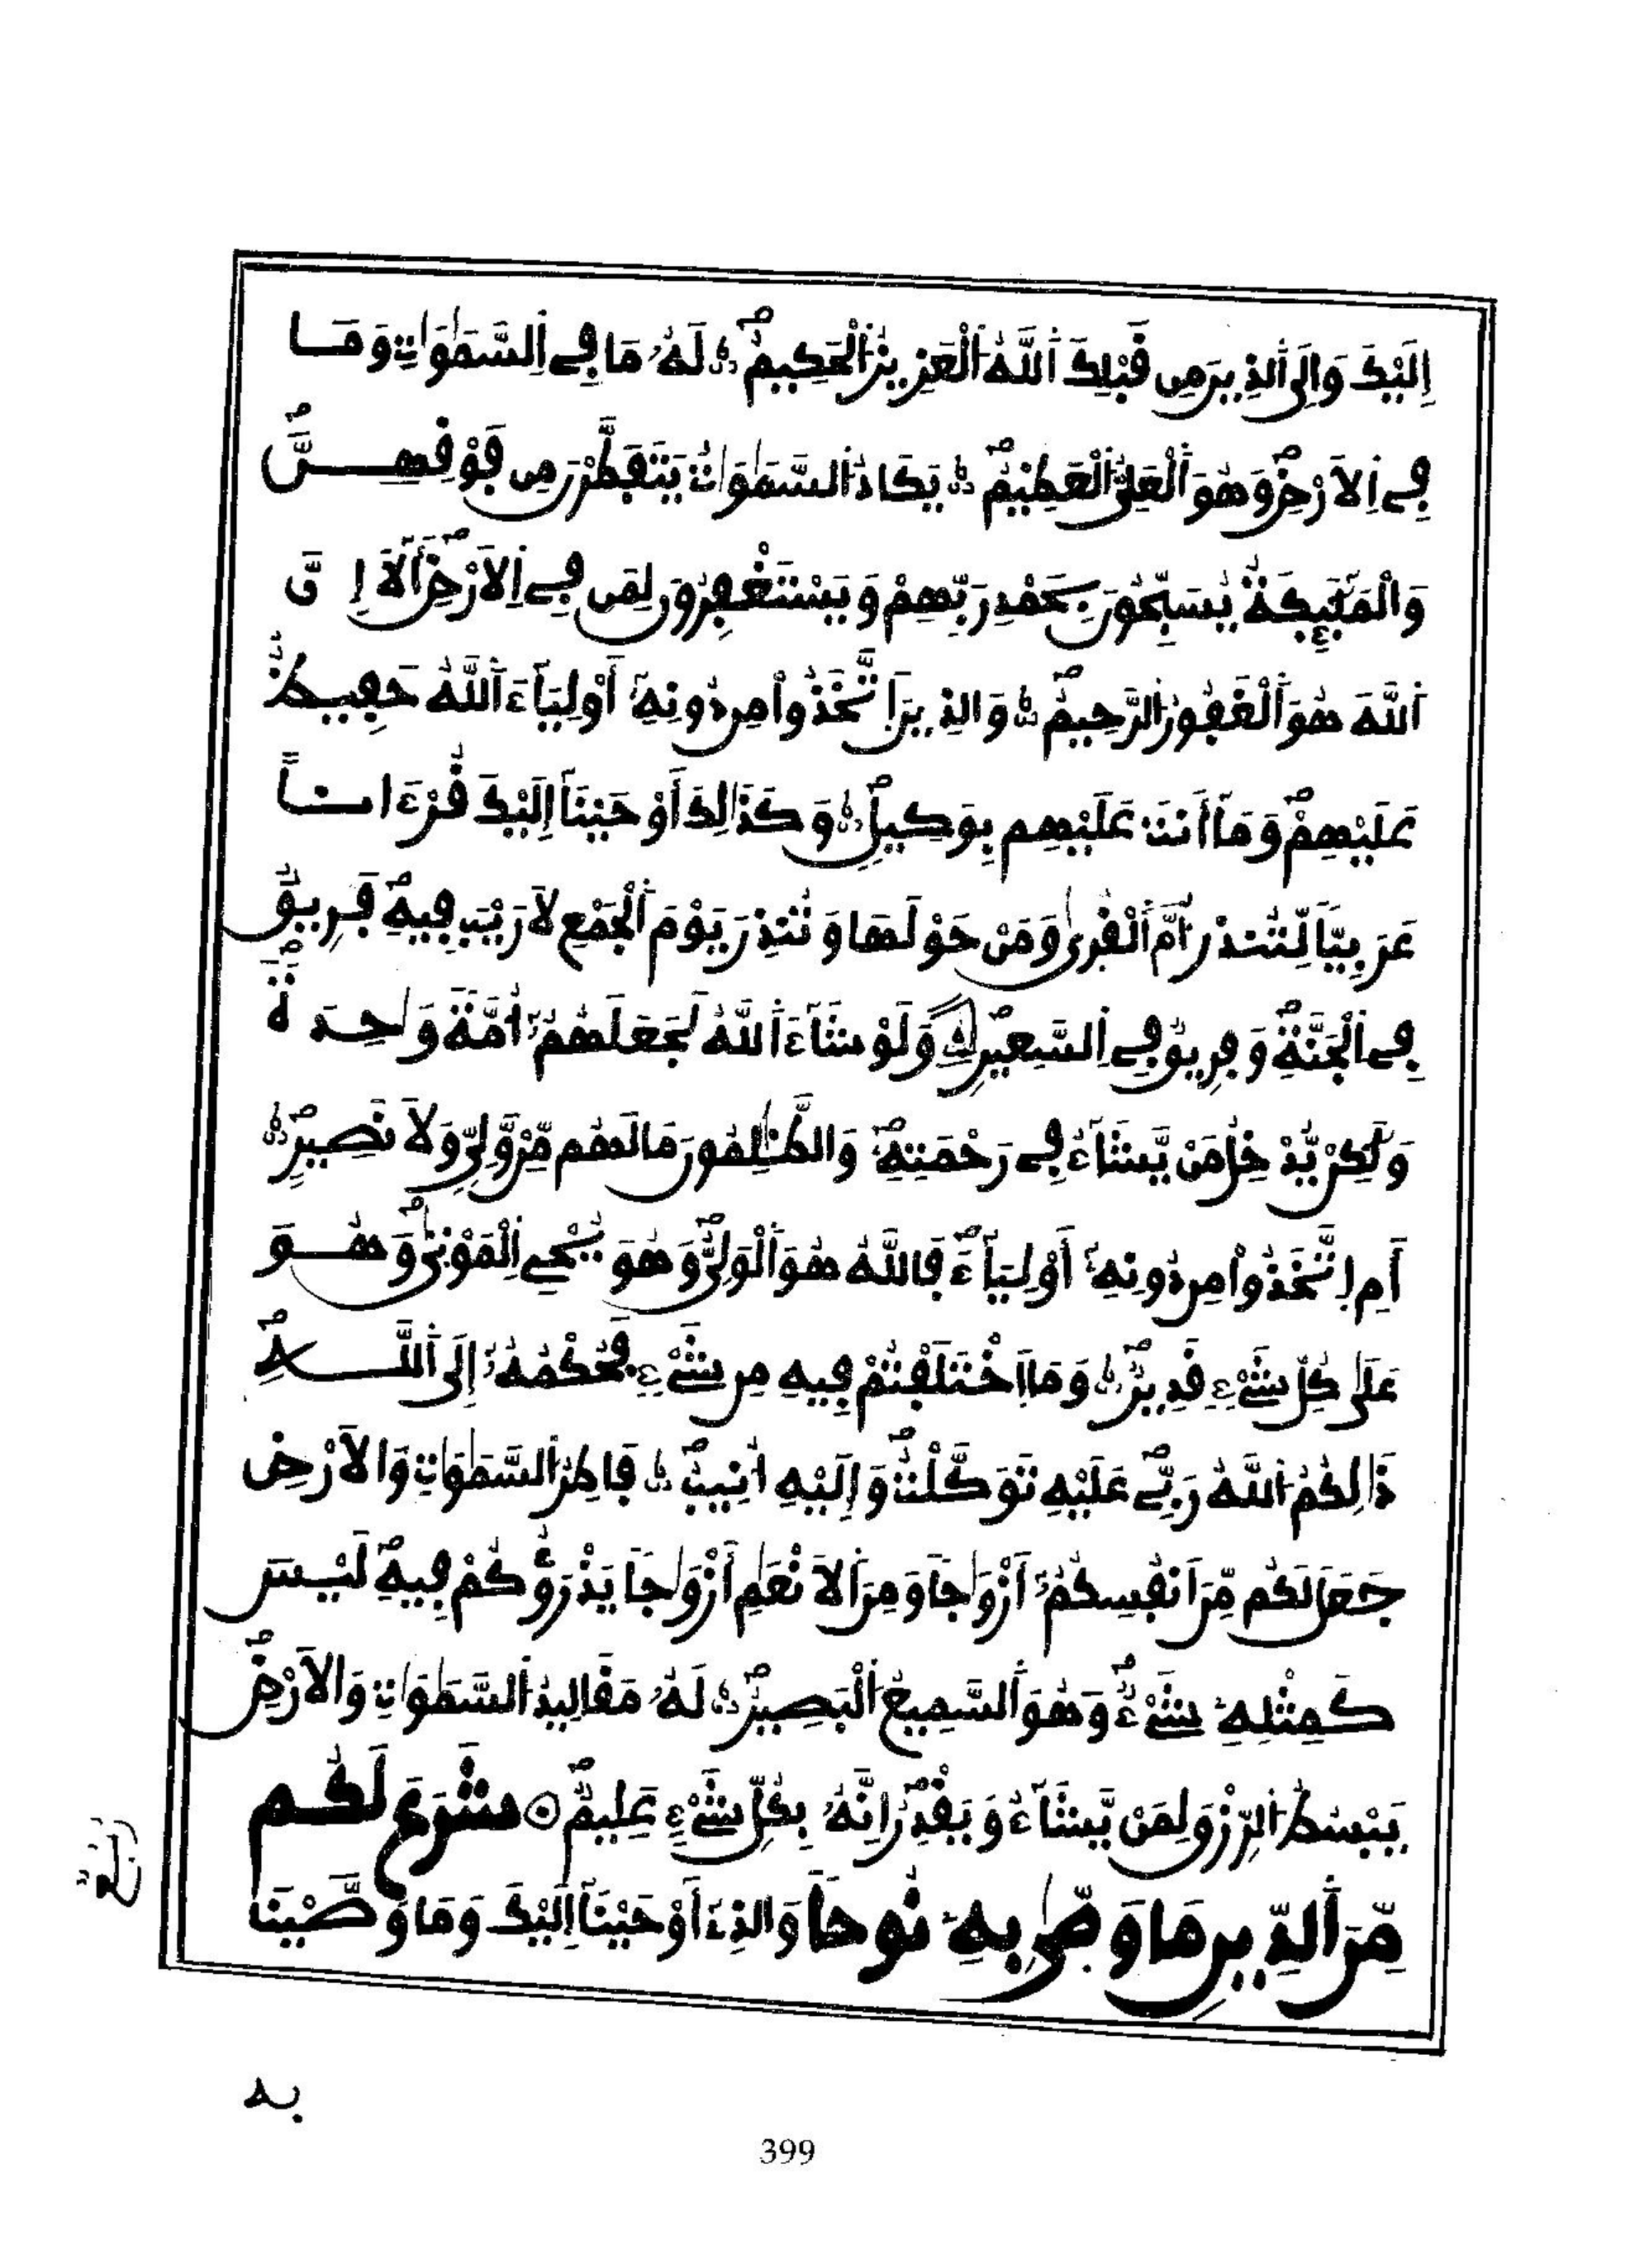 إِلَيْكَ وَإِلَى ٱلذِينَ مِن قَبْلِكَ ٱللَّهُ ٱلْعَزِيزُ ٱلْحَكِيمُ لَهُۥ مَا فِى ٱلسَّمَٰوَٰتِ وَمَا
فِى ٱلَارْضِ وَهُوَ ٱلْعَلِىُّ ٱلْعَظِيمُ يَكَادُ ٱلسَّمَٰوَٰتُ يَتَفَطَّرْنَ مِن فَوْقِهِنَّ
وَالْمَلَٰٓئِكَةُ يُسَبِّحُونَ بِحَمْدِ رَبِّهِمْ وَيَسْتَغْفِرُونَ لِمَن فِى ٱلَارْضِ أَلَآ إِنَّ
ٱللَّهَ هُوَ ٱلْغَفُورُ ٱلرَّحِيمُ وَالذِينَ ٱتَّخَذُوا۟ مِن دُونِهِۦٓ أَوْلِيَآءَ ٱللَّهُ حَفِيظٌ
عَلَيْهِمْ وَمَآ أَنتَ عَلَيْهِم بِوَكِيلٍ وَكَذَٰلِكَ أَوْحَيْنَآ إِلَيْكَ قُرْءَاناً
عَرَبِيّاً لِّتُنذِرَ أُمَّ ٱلْقُرَىٰ وَمَنْ حَوْلَهَا وَتُنذِرَ يَوْمَ ٱلْجَمْعِ لَا رَيْبَ فِيهِ فَرِيقٌ
فِى ٱلْجَنَّةِ وَفَرِيقٌ فِى ٱلسَّعِيرِ وَلَوْ شَآءَ ٱللَّهُ لَجَعَلَهُمُۥٓ أُمَّةً وَٰحِدَةً
وَلَٰكِنْ يُّدْخِلُ مَنْ يَّشَآءُ فِى رَحْمَتِهِۦ وَالظَّٰلِمُونَ مَا لَهُم مِّنْ وَّلِىٍّ وَلَا نَصِيرٍ
أَمِ ٱتَّخَذُوا۟ مِن دُونِهِۦٓ أَوْلِيَآءَ فَاللَّهُ هُوَ ٱلْوَلِىُّ وَهُوَ يُحْىِ ٱلْمَوْتَىٰ وَهُوَ
عَلَىٰ كُلِّ شَىْءٍ قَدِيرٌ وَمَا ٱخْتَلَفْتُمْ فِيهِ مِن شَىْءٍ فَحُكْمُهُۥٓ إِلَى ٱللَّهِ
ذَٰلِكُمُ ٱللَّهُ رَبِّى عَلَيْهِ تَوَكَّلْتُ وَإِلَيْهِ أُنِيبُ فَاطِرُ ٱلسَّمَٰوَٰتِ وَالَارْضِ
جَعَلَ لَكُم مِّنَ ٱنفُسِكُمُۥٓ أَزْوَٰجاً وَمِنَ ٱلَانْعَٰمِ أَزْوَٰجاً يَذْرَؤُكُمْ فِيهِ لَيْسَ
كَمِثْلِهِۦ شَىْءٌ وَهُوَ ٱلسَّمِيعُ ٱلْبَصِيرُ لَهُۥ مَقَالِيدُ ٱلسَّمَٰوَٰتِ وَالَارْضِ
يَبْسُطُ ٱلرِّزْقَ لِمَنْ يَّشَآءُ وَيَقْدِرُ إِنَّهُۥ بِكُلِّ شَىْءٍ عَلِيمٌ شَرَعَ لَكُم
مِّنَ ٱلدِّينِ مَا وَصَّىٰ بِهِۦ نُوحاً وَالذِىٓ أَوْحَيْنَآ إِلَيْكَ وَمَا وَصَّيْنَا
ربع
به
399